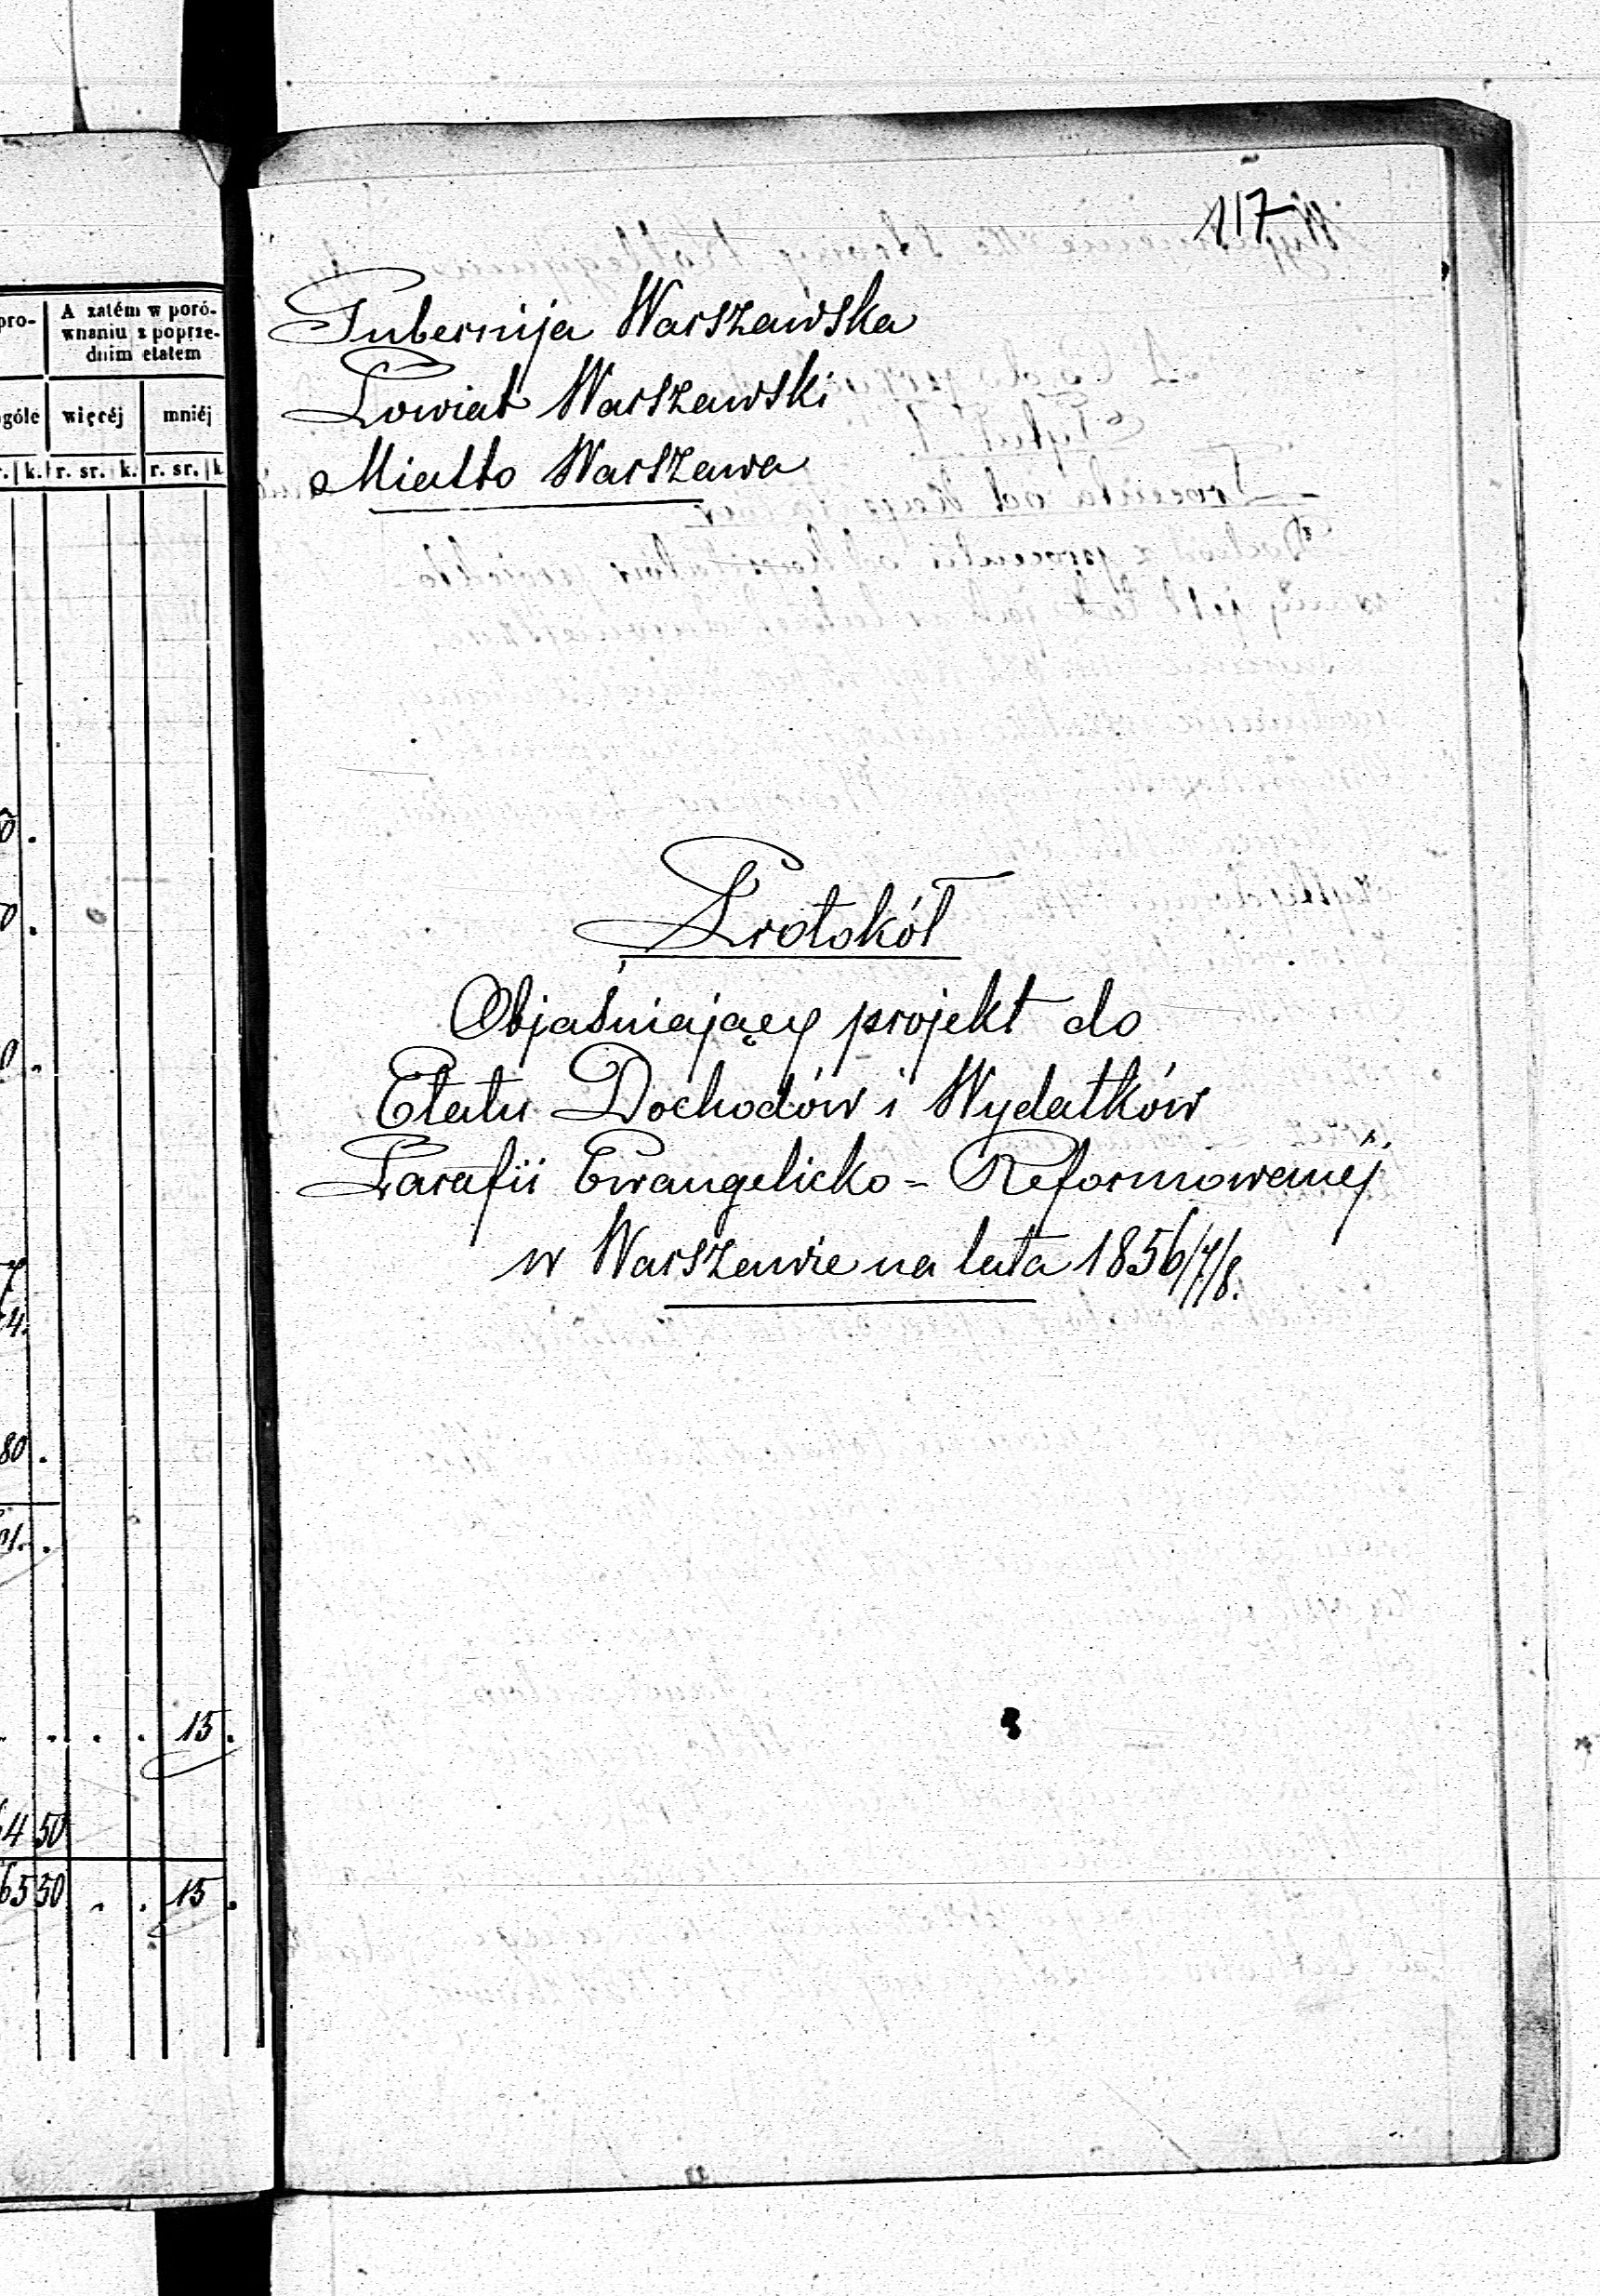 pro-
A zatém w poró-
wnaniu z poprze-
dnim etatem
ogóle więcéj mniéj
r. k. r. sr. k. r. sr. k
80
15
4 50
65 50 15
117
Gubernija Warszawska
Powiat Warszawski
Miasto Warszawa
Protokół
Objaśniający projekt do
Etatu Dochodów i Wydatków
Parafii Ewangelicko-Reformowanéj
w Warszawie na lata 1856/7/8.